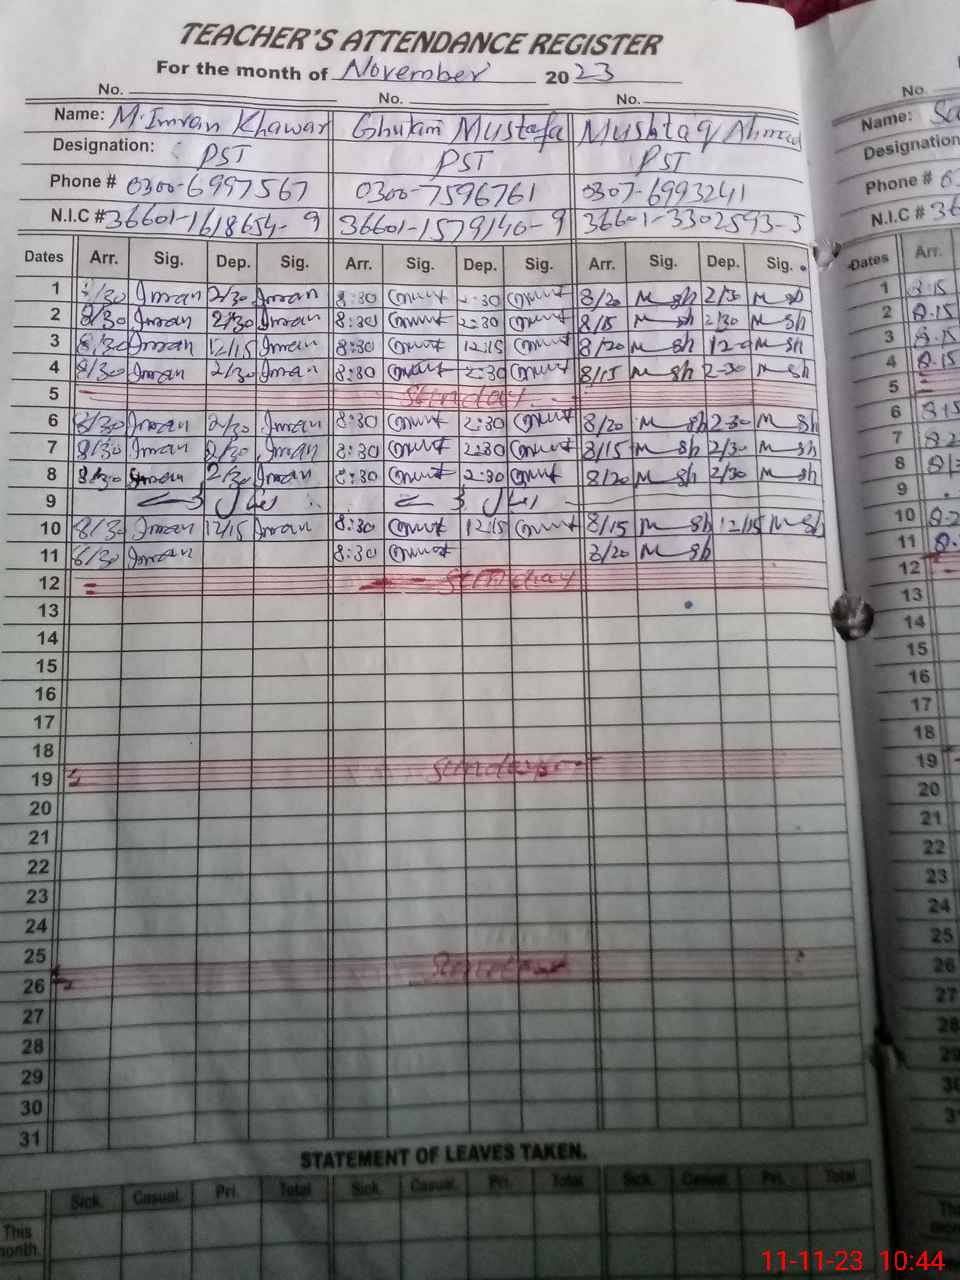 TEACHER'S ATTENDANCE REGISTER
For the month of November 2023
No. No. No. No.
Name: M. Imran Khawar Ghulam Mustafa Mushtaq Ahmad Name:
Designation: PST PST PST Designation
Phone # 0300-6997567 0300-7596761 0307-6993241 Phone #
N.I.C # 36601-1618654-9 36601-1579140-9 36601-3302593-3 N.I.C # 36
Dates Arr. Sig. Dep. Sig. Arr. Sig. Dep. Sig. Arr. Sig. Dep. Sig. Dates Arr.
1 8/30 Imran 2/30 Imran 8:30 2:30 8/20 M sh 2/30 M sh 1 8.15
2 8/30 Imran 2/30 Imran 8:30 2:30 8/15 M sh 2/30 M sh 2 8.15
3 8/30 Imran 12/15 Imran 8:30 12:15 8/20 M sh M sh 3 8.15
4 8/30 Imran 2/30 Imran 8:30 2:30 8/15 M sh 2-30 M sh 4 8.15
5 Sunday 5
6 8/30 Imran 2/30 Imran 8:30 2:30 8/20 M sh 2-30 M sh 6 8.15
7 8/30 Imran 2/30 Imran 8:30 2:30 8/15 M sh 2/30 M sh 7
8 8/30 Imran 2/30 Imran 8:30 2:30 8/20 M sh 2/30 M sh 8
9 9
10 8/30 Imran 12/15 Imran 8:30 12:15 8/15 M sh 12/15 M sh 10
11 Imran 8:30 8/20 M sh 11
12 Sunday 12
13 13
14 14
15 15
16 16
17 17
18 18
19 Sunday 19
20 20
21 21
22 22
23 23
24 24
25 25
26 Sunday 26
27 27
28 28
29 29
30 30
31
STATEMENT OF LEAVES TAKEN.
Sick. Casual. Pri. Total Sick. Casual. Pri. Total Sick. Casual. Pri. Total
This month.
11-11-23 10:44